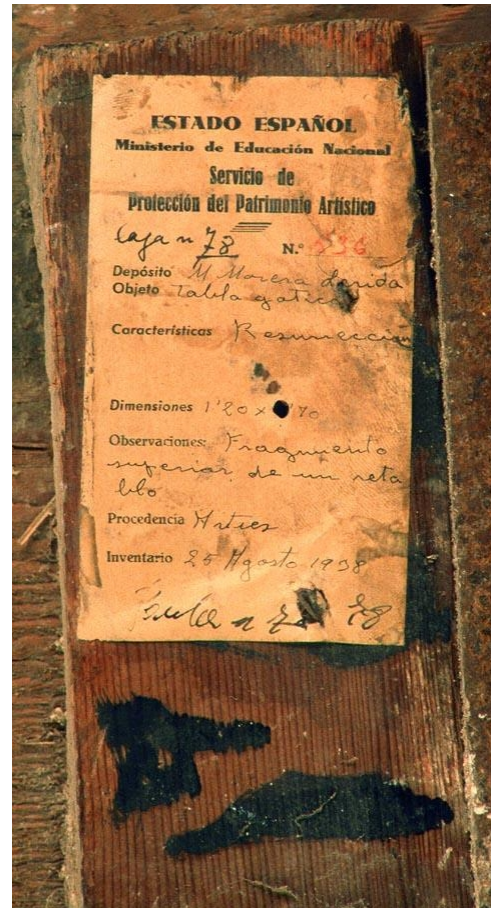 ESTADO ESPAÑOL
Ministerio de Educación Nacional
Servicio de
Protección del Patrimonio Artístico
Caja n 78 N.º 536
Depósito M Morera Lerida
Objeto Tabla gotica
Características Resurrección
Dimensiones 1'20 x 170
Observaciones: Fragmento
superior de un reta
blo
Procedencia Arties
Inventario 25 Agosto 1938
n 78